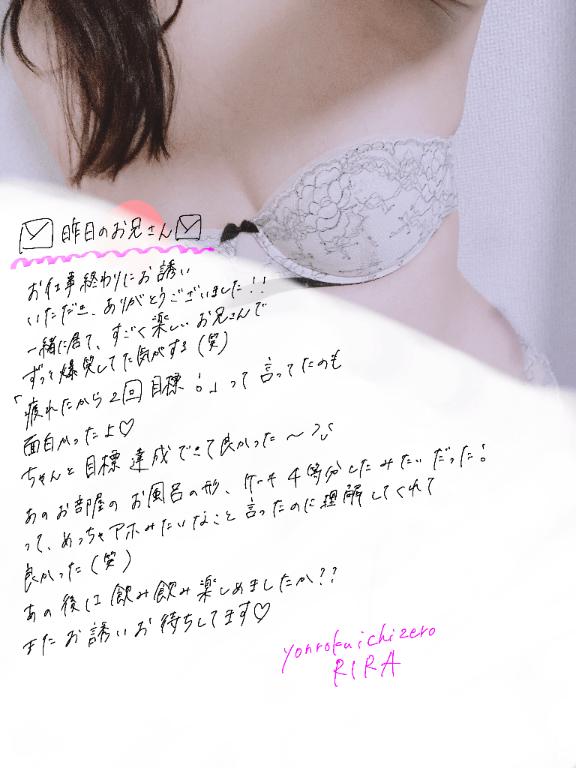 昨日のお兄さん
お仕事終わりにお誘い
いただき、ありがとうございました!!
一緒に居て、すごく楽しいお兄さんで
ずっと爆笑してた気がする(笑)
「疲れたから2回目標!」って言ってたのも
面白かったよ♡
ちゃんと目標達成できて良かった〜♪
あのお部屋のお風呂の形、ケーキ4等分したみたいだった!
って、めっちゃアホみたいなこと言ったのに理解してくれて
良かった(笑)
あの後は飲み飲み楽しめましたか??
またお誘いお待ちしてます♡
yonrokuichizero
RIRA